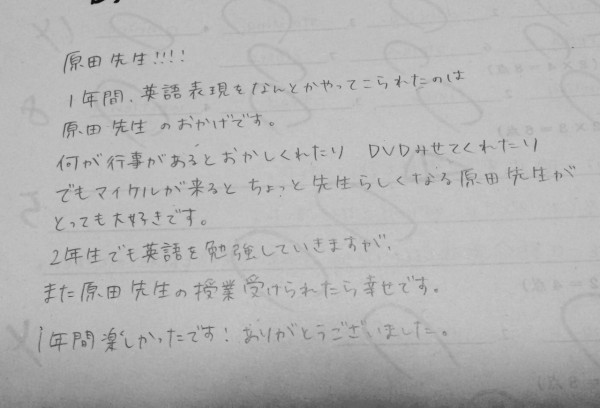 原田先生!!!!
1年間、英語表現をなんとかやってこられたのは
原田先生のおかげです。
何か行事があるとおかしくれたり DVDみせてくれたり
でもマイケルが来るとちょっと先生らしくなる原田先生が
とっても大好きです。
2年生でも英語を勉強していきますが、
また原田先生の授業受けられたら幸せです。
1年間楽しかったです!ありがとうございました。